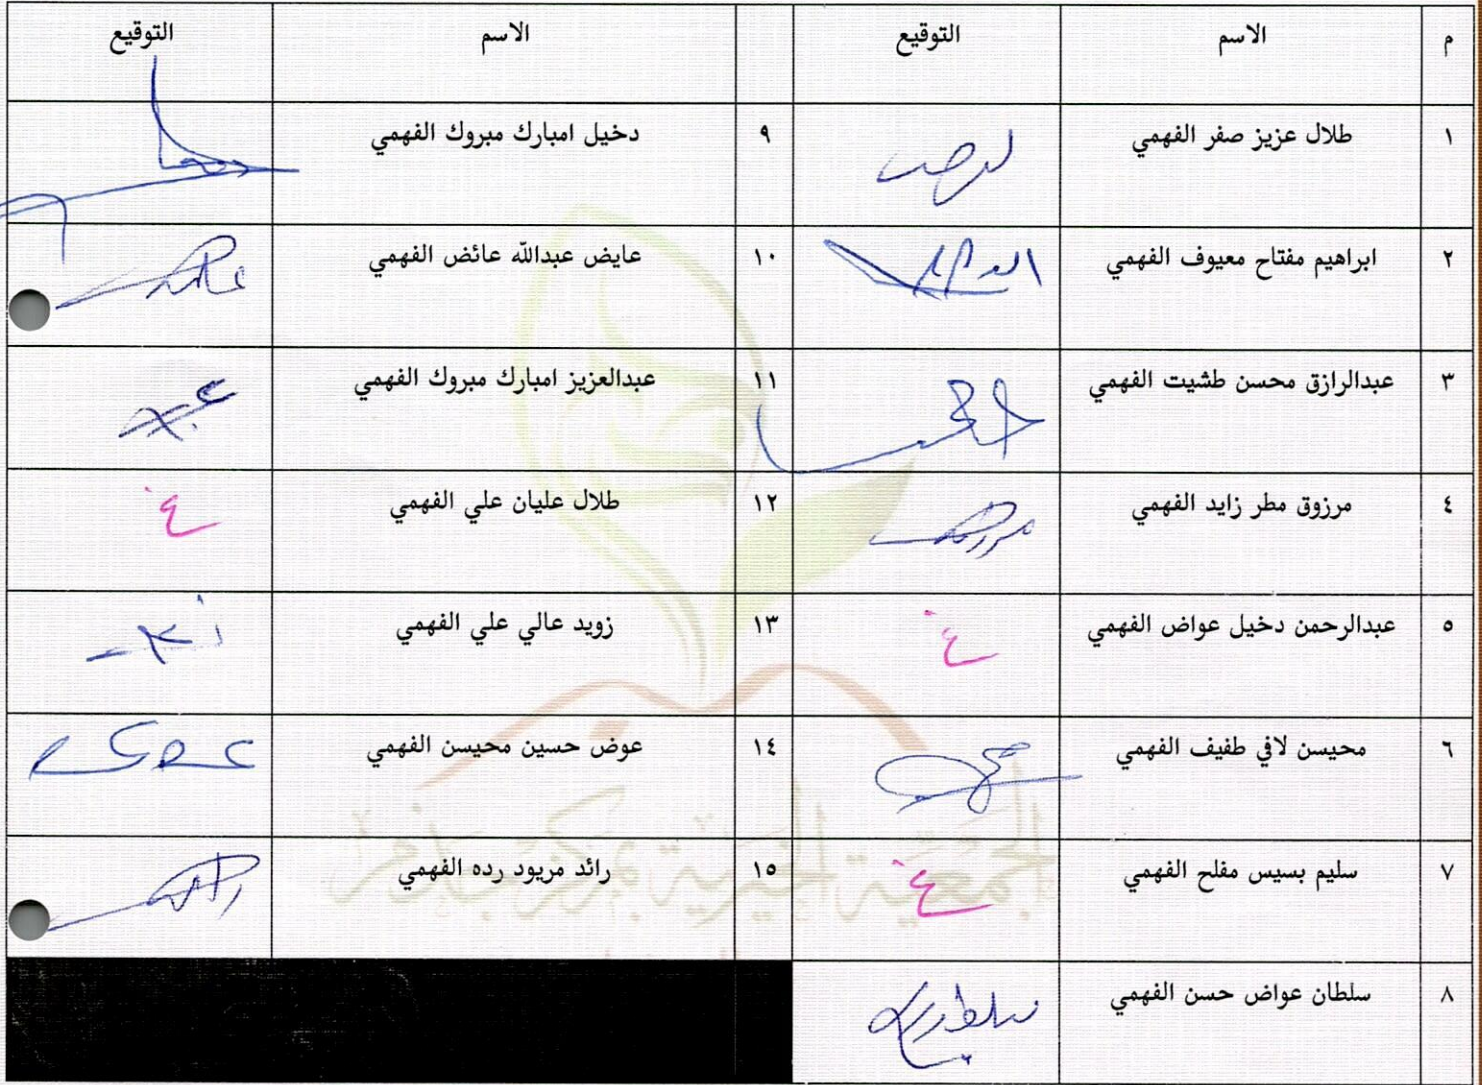 م الاسم التوقيع م الاسم التوقيع
١ طلال عزيز صفر الفهمي ٩ دخيل امبارك مبروك الفهمي
٢ ابراهيم مفتاح معيوف الفهمي ١٠ عايض عبدالله عائض الفهمي
٣ عبدالرازق محسن طشيت الفهمي ١١ عبدالعزيز امبارك مبروك الفهمي
٤ مرزوق مطر زايد الفهمي ١٢ طلال عليان علي الفهمي غ
٥ عبدالرحمن دخيل عواض الفهمي غ ١٣ زويد عالي علي الفهمي
٦ محيسن لافي طفيف الفهمي ١٤ عوض حسين محيسن الفهمي
٧ سليم بسيس مفلح الفهمي غ ١٥ رائد مريود رده الفهمي
٨ سلطان عواض حسن الفهمي